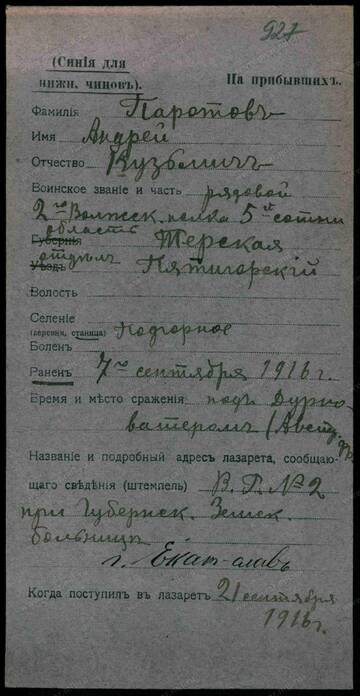 927
(Синія для
нижн. чиновъ).
На прибывшихъ.
Фамилія Паротовъ
Имя Андрей
Отчество Кузьмичъ
Воинское званіе и часть рядовой
2го Волжск. полка 5й сотни
область
Губернія Терская
отдѣлъ
Уѣздъ Пятигорскій
Волость
Селеніе
(деревня, станица) Подгорное
Боленъ
Раненъ 7го сентября 1916 г.
Время и мѣсто сраженія подъ Дурно-
ватеромъ
Названіе и подробный адресъ лазарета, сообщаю-
щаго свѣдѣнія (штемпель) В. Г. № 2
при Губернск. Земск.
больницѣ
г. Екат-славъ
Когда поступил въ лазаретъ 21 сентября
1916 г.